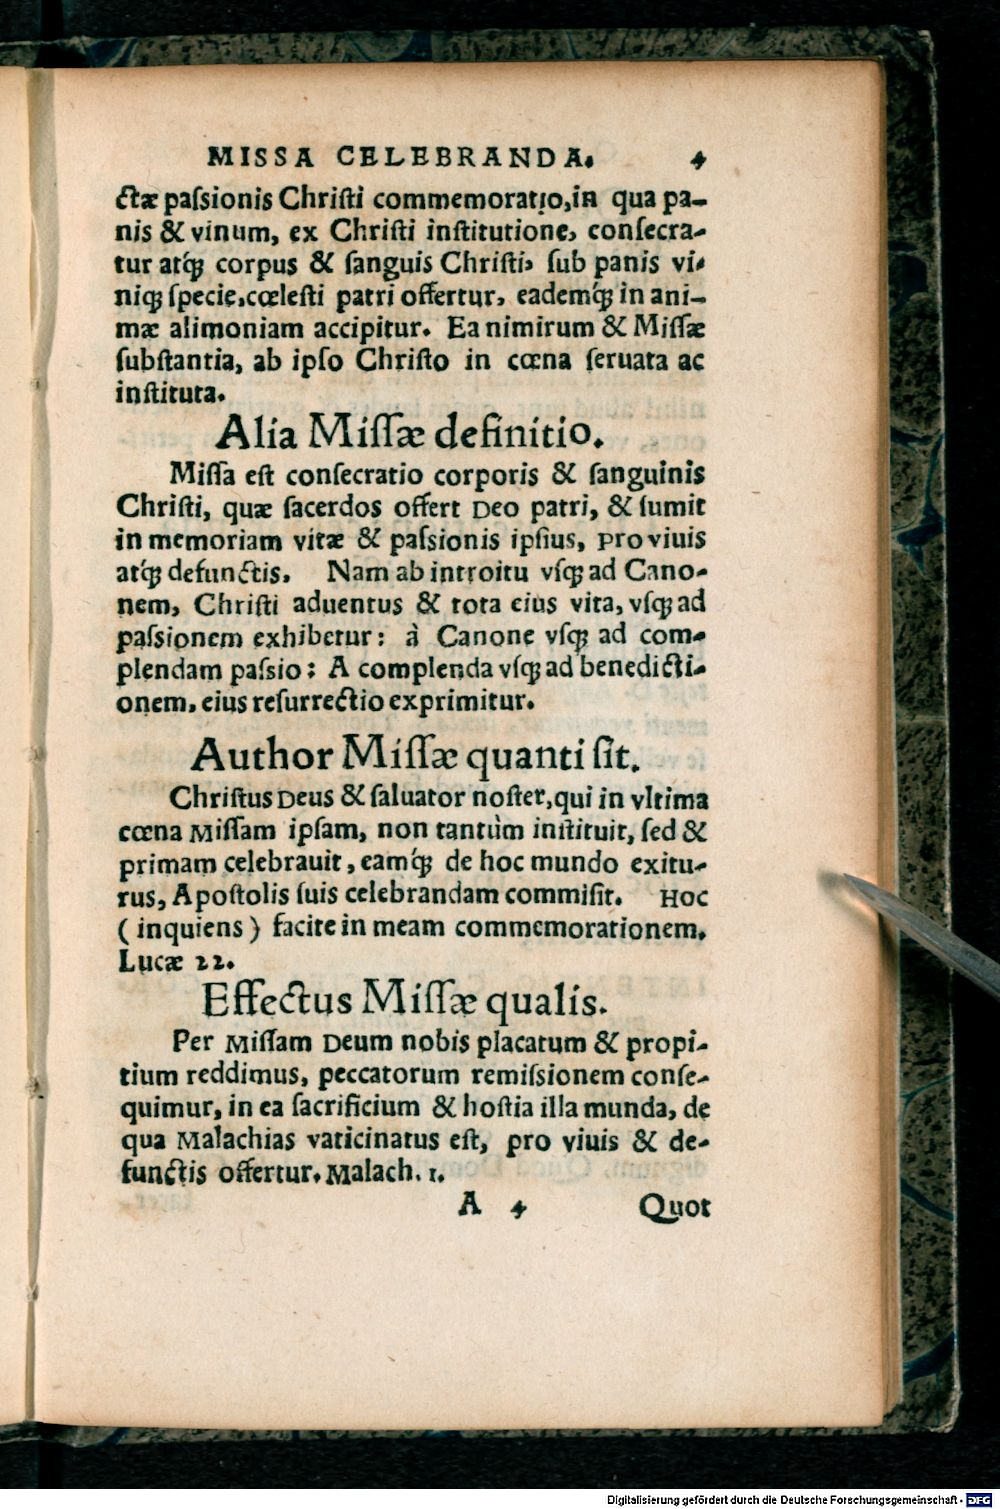 MISSA CELEBRANDA. 4
ctæ paſsionis Chriſti commemoratio, in qua pa-
nis & vinum, ex Chriſti inſtitutione, conſecra-
tur atq́ꝫ corpus & ſanguis Chriſti, ſub panis vi-
niqꝫ ſpecie, cœleſti patri offertur, eademq́ꝫ in ani-
mæ alimoniam accipitur. Ea nimirum & Miſſæ
ſubſtantia, ab ipſo Chriſto in cœna ſeruata ac
inſtituta.
Alia Miſſæ definitio.
Miſſa eſt conſecratio corporis & ſanguinis
Chriſti, quæ ſacerdos offert Deo patri, & ſumit
in memoriam vitæ & paſsionis ipſius, pro viuis
atq́ꝫ defunctis. Nam ab introitu vſqꝫ ad Cano-
nem, Chriſti aduentus & tota eius vita, vſqꝫ ad
paſsionem exhibetur: à Canone vſqꝫ ad com-
plendam paſsio: A complenda vſqꝫ ad benedicti-
onem, eius reſurrectio exprimitur.
Author Miſſæ quanti ſit.
Chriſtus Deus & ſaluator noſter, qui in vltima
cœna Miſſam ipſam, non tantùm inſtituit, ſed &
primam celebrauit, eamq́ꝫ de hoc mundo exitu-
rus, Apoſtolis ſuis celebrandam commiſit. Hoc
(inquiens) facite in meam commemorationem.
Lucæ 22.
Effectus Miſſæ qualis.
Per Miſſam Deum nobis placatum & propi-
tium reddimus, peccatorum remiſsionem conſe-
quimur, in ea ſacrificium & hoſtia illa munda, de
qua Malachias vaticinatus eſt, pro viuis & de-
functis offertur. Malach. 1.
A 4 Quot
Digitalisierung gefördert durch die Deutsche Forschungsgemeinschaft - DFG